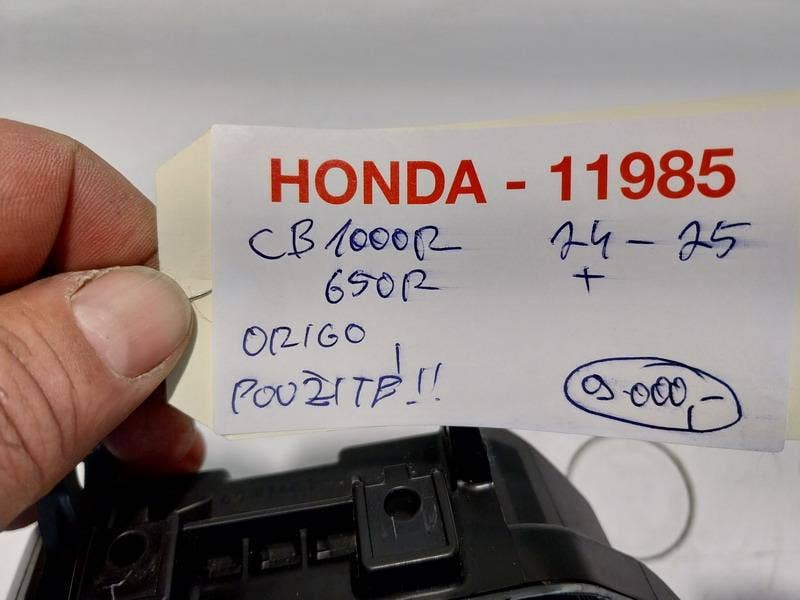 HONDA - 11985
CB 1000R 24 - 25
650R +
ORIGO
POUŽITÉ!!
9.000,-